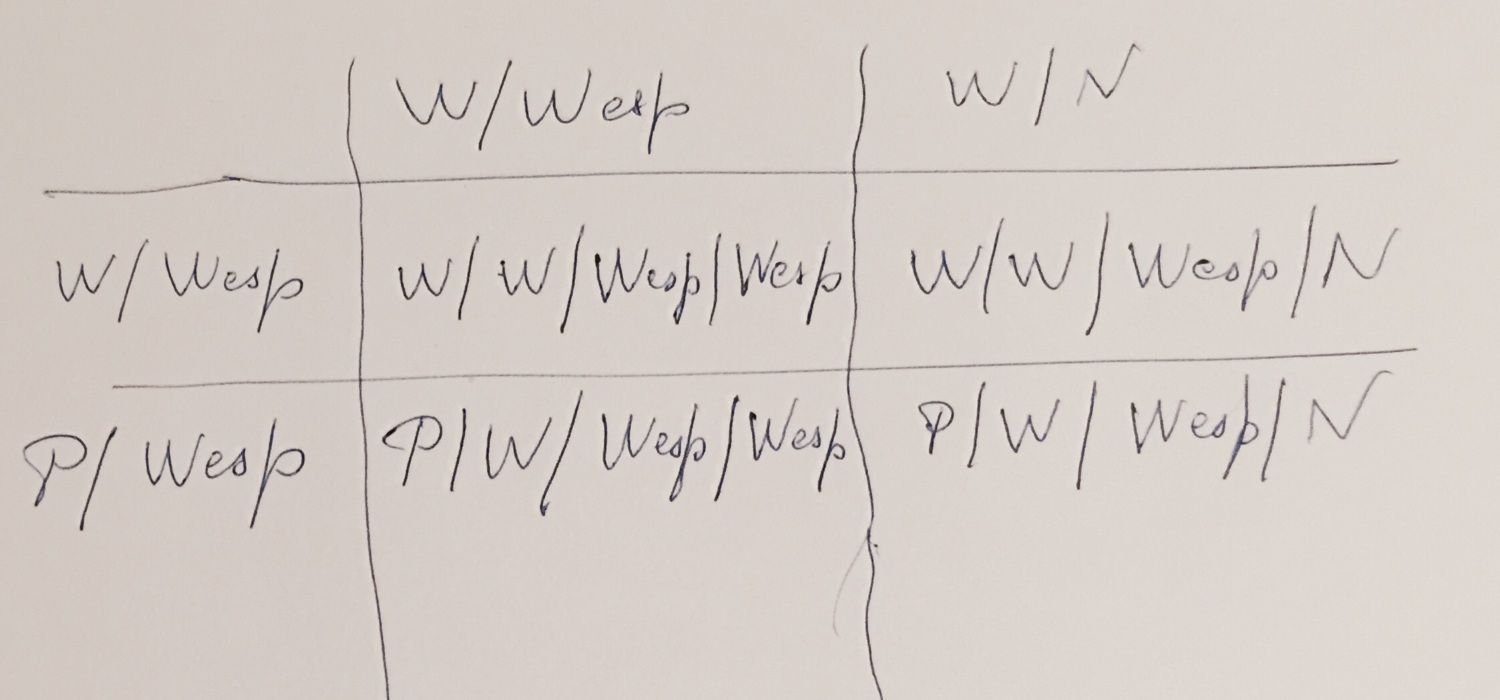 W/Wesp W/N
W/Wesp W/W/Wesp/Wesp W/W/Wesp/N
P/Wesp P/W/Wesp/Wesp P/W/Wesp/N